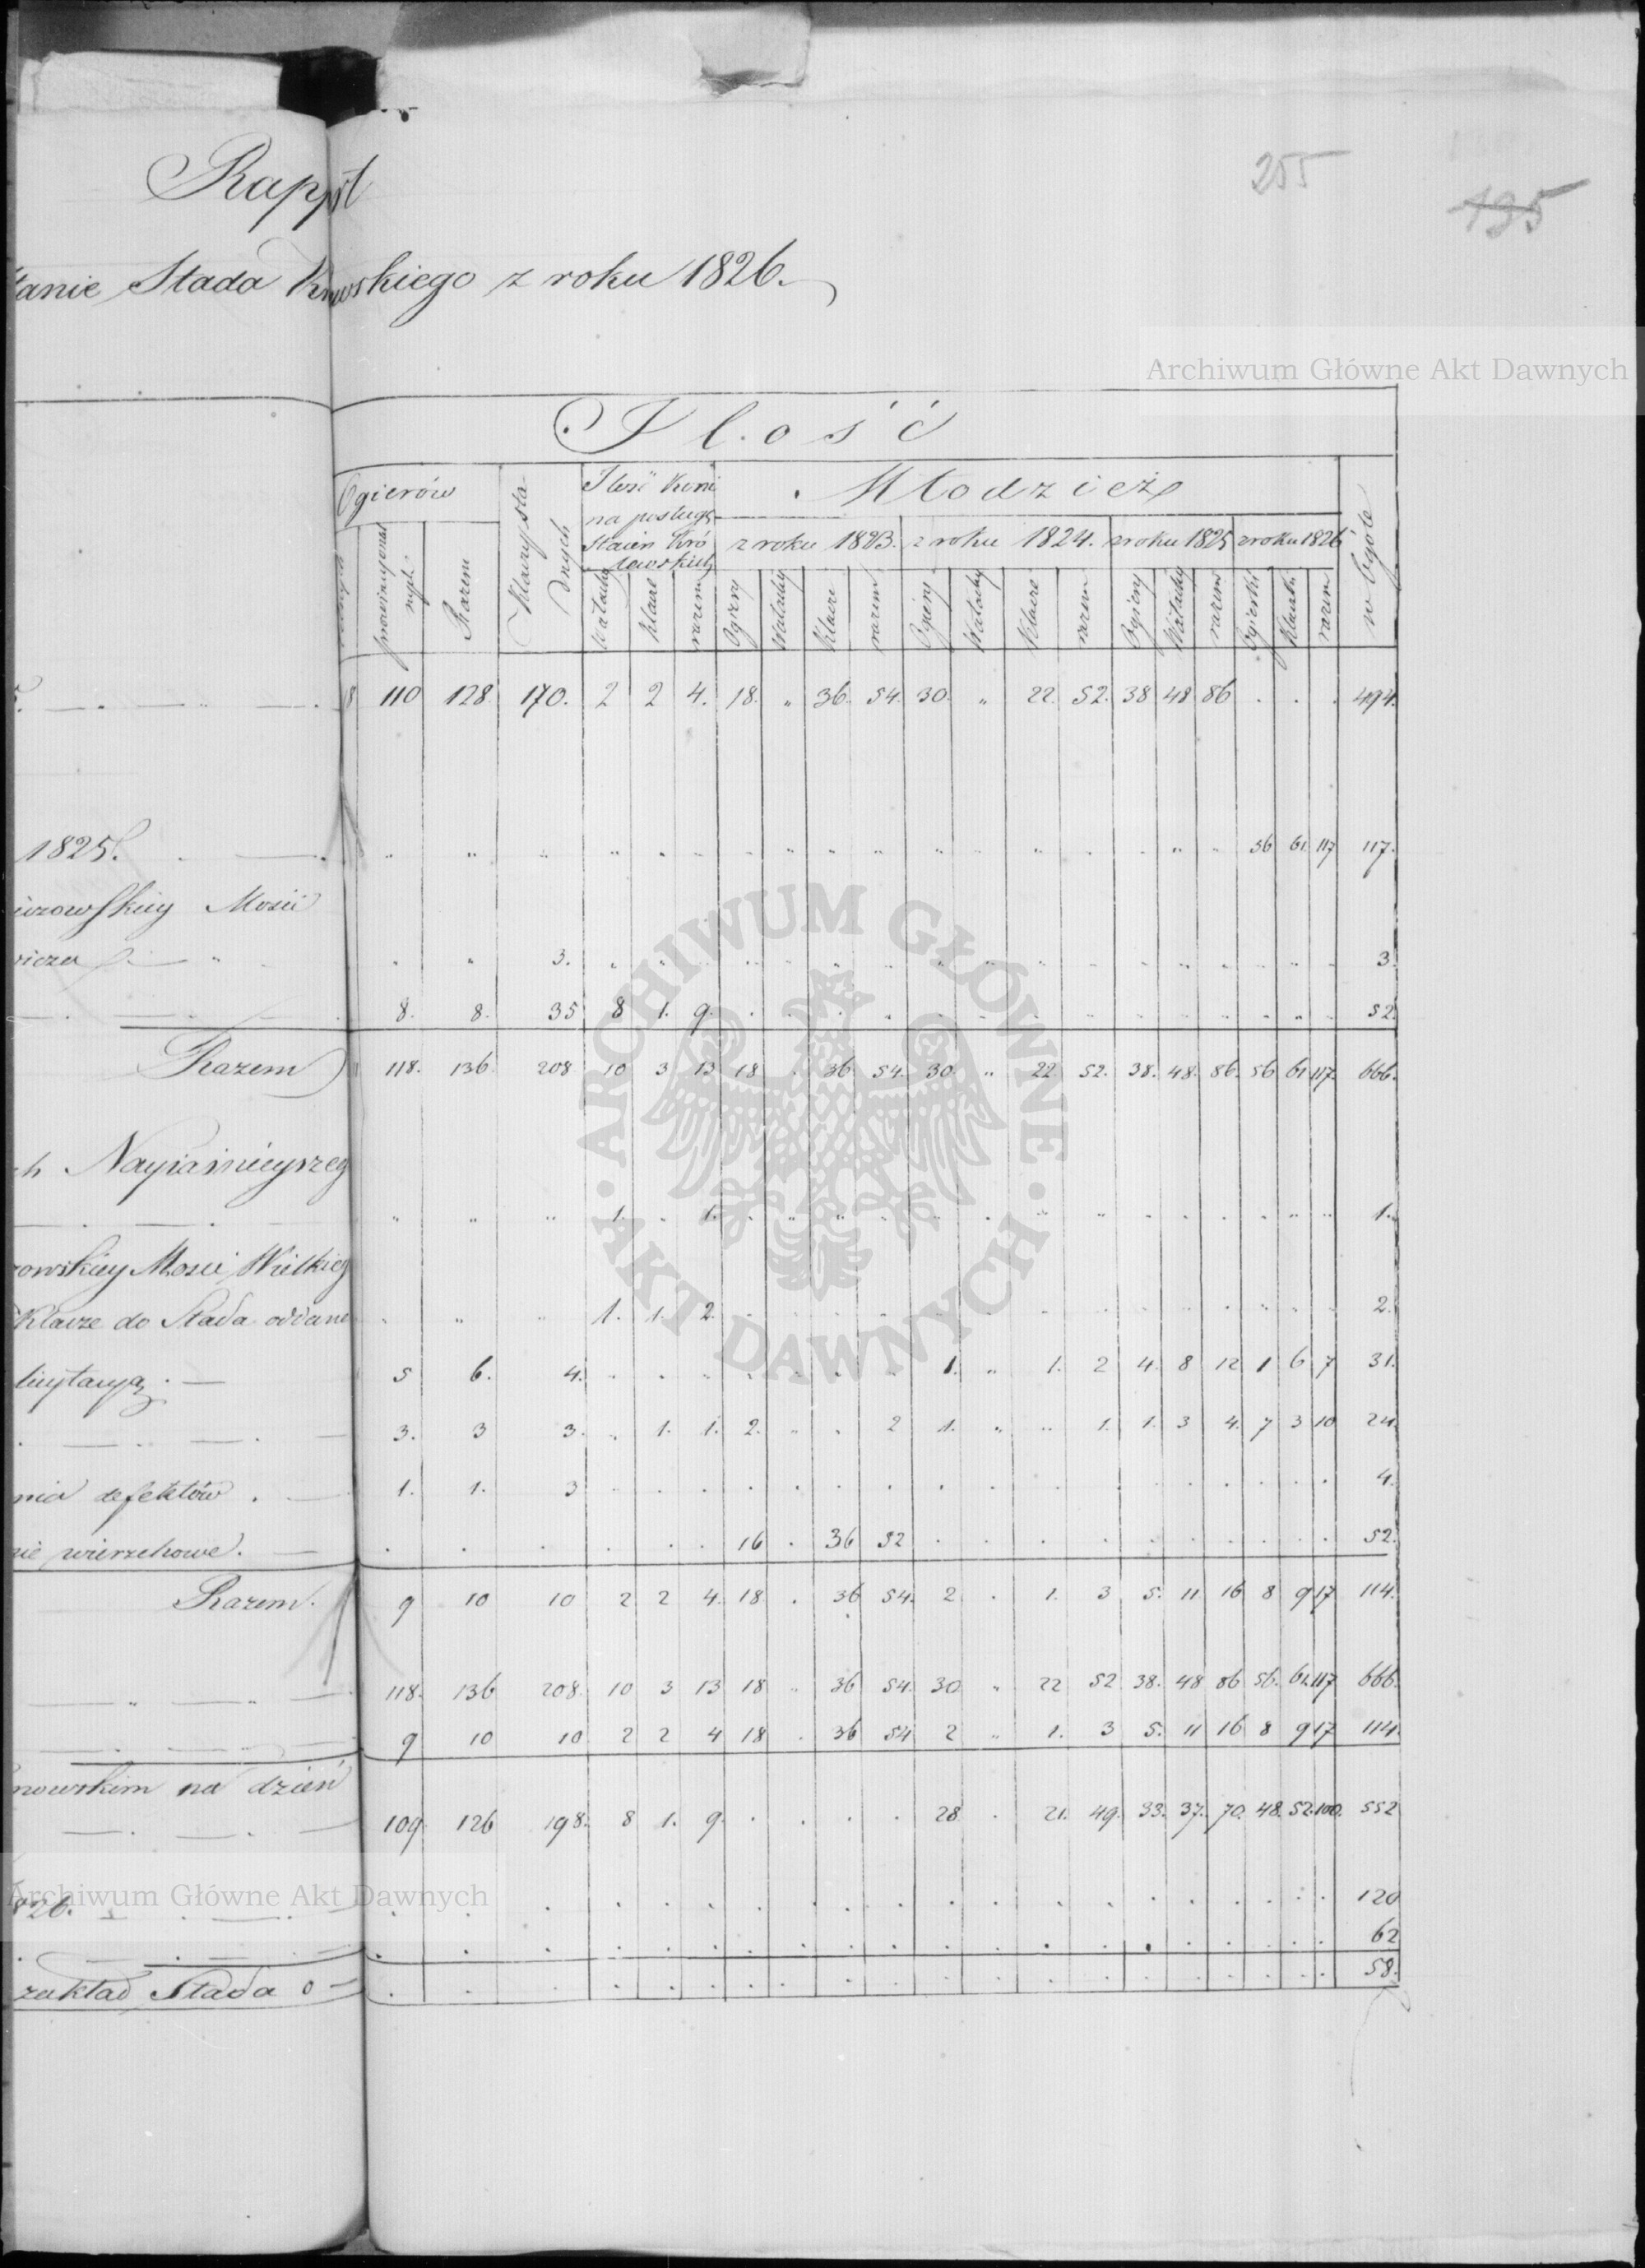 255
195
Rapport
Stada Knowskiego z roku 1826.
Archiwum Główne Akt Dawnych
Jlość
Ogierów
Klaczy sta-
dnych
Jlość Koni
na posługę
Młodzieży
w Ogóle
z roku 1823. z roku 1824. z roku 1825 z roku 1826
Razem
Wałachy Klacze razem Ogiery Wałachy Klacze razem Ogiery Wałachy Klacze razem Ogiery Wałachy razem Ogierki Klaczki razem
8 110 128 170. 2 2 4. 18. „ 36. 54. 30. „ 22. 52. 38 48 86 . . . 494.
1825. 56 61 117 117.
Mości
3. 3.
8. 8. 35 8 1. 9. 52.
Razem 118. 136. 208. 10 3 13 18 . 36. 54. 30. „ 22 52. 38. 48. 86. 56 61 117. 666.
1. 1. 1.
Mości Wielkieg
Klacze do Stada oddane 1. 1. 2. 2.
licytacyą. 5 6. 4. 1. „ 1. 2 4. 8 12 1 6 7 31.
3. 3 3. „ 1. 1. 2. „ . 2 1. „ „ 1. 1. 3 4. 7 3 10 24.
defektów. 1. 1. 3 4.
wierzchowe. 16 . 36 52 52.
Razem. 9 10 10 2 2 4. 18 . 36 54. 2 . 1. 3 5. 11 16 8 9 17 114.
118. 136 208. 10 3 13 18 „ 36 54. 30 „ 22 52 38. 48 86 56. 61. 117 666.
9 10 10 2 2 4 18 . 36 54 2 „ 1. 3 5. 11 16 8 9 17 114.
na dzień
109. 126 198. 8 1. 9. . . . . 28 . 21. 49. 33. 37. 70. 48. 52. 100. 552
Archiwum Główne Akt Dawnych
826. 120
62
zakład Stada 58.
ARCHIWUM GŁÓWNE · AKT DAWNYCH ·